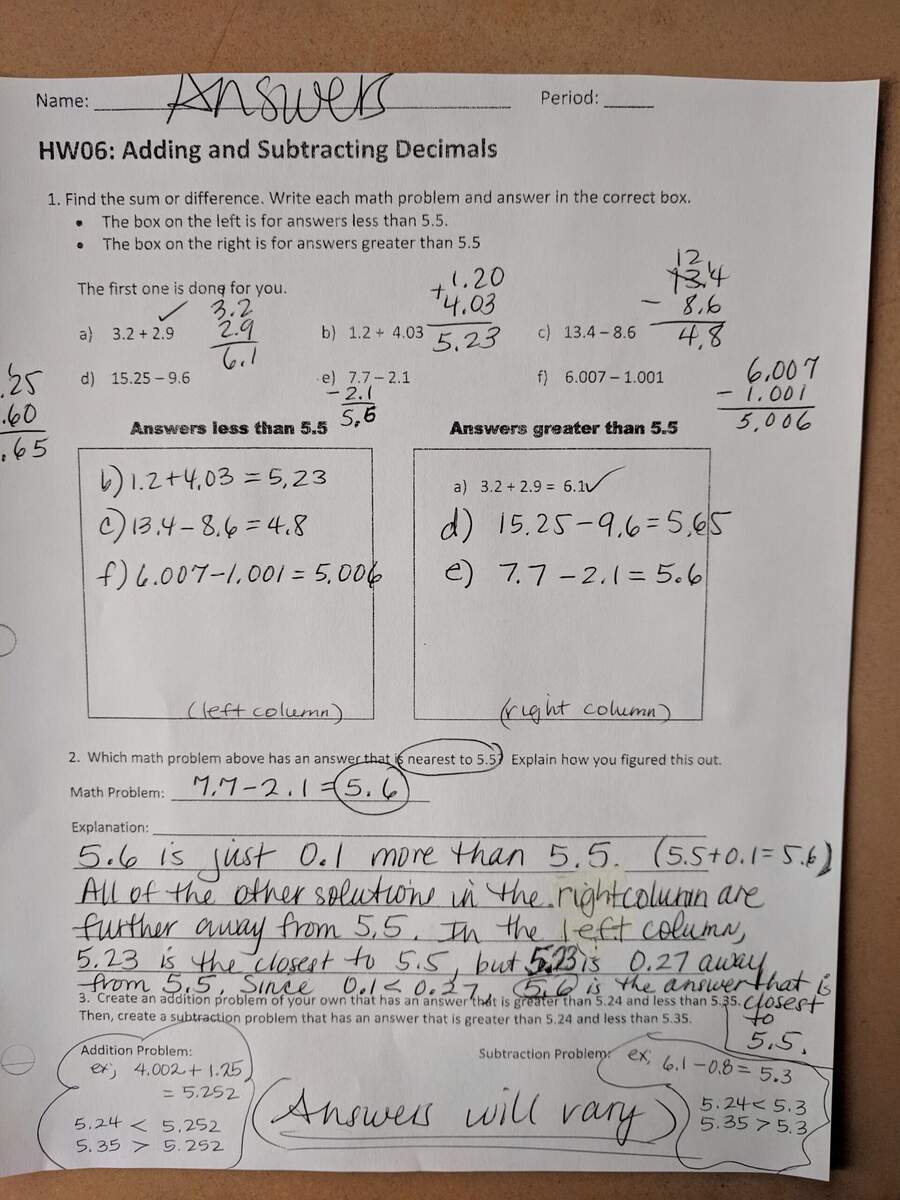 Name: Answers Period:
HW06: Adding and Subtracting Decimals
1. Find the sum or difference. Write each math problem and answer in the correct box.
• The box on the left is for answers less than 5.5.
• The box on the right is for answers greater than 5.5
The first one is done for you.
a) 3.2 + 2.9
✓
3.2
2.9
6.1
b) 1.2 + 4.03
1.20
+4.03
5.23
c) 13.4 – 8.6
12
13.4
- 8.6
4.8
d) 15.25 – 9.6
.25
.60
.65
e) 7.7 – 2.1
- 2.1
5.6
f) 6.007 – 1.001
6.007
- 1.001
5.006
Answers less than 5.5
b) 1.2+4.03 = 5.23
c) 13.4-8.6 = 4.8
f) 6.007-1.001 = 5.006
(left column)
Answers greater than 5.5
a) 3.2 + 2.9 = 6.1 ✓
d) 15.25-9.6=5.65
e) 7.7-2.1 = 5.6
(right column)
2. Which math problem above has an answer that is nearest to 5.5? Explain how you figured this out.
Math Problem: 7.7-2.1=5.6
Explanation:
5.6 is just 0.1 more than 5.5. (5.5+0.1=5.6)
All of the other solutions in the right column are
further away from 5.5. In the left column,
5.23 is the closest to 5.5, but 5.23 is 0.27 away
from 5.5. Since 0.1<0.27, 5.6 is the answer that is
closest
to
5.5.
3. Create an addition problem of your own that has an answer that is greater than 5.24 and less than 5.35.
Then, create a subtraction problem that has an answer that is greater than 5.24 and less than 5.35.
Addition Problem:
ex; 4.002 + 1.25
= 5.252
5.24 < 5.252
5.35 > 5.252
Answers will vary
Subtraction Problem: ex; 6.1-0.8 = 5.3
5.24< 5.3
5.35 > 5.3